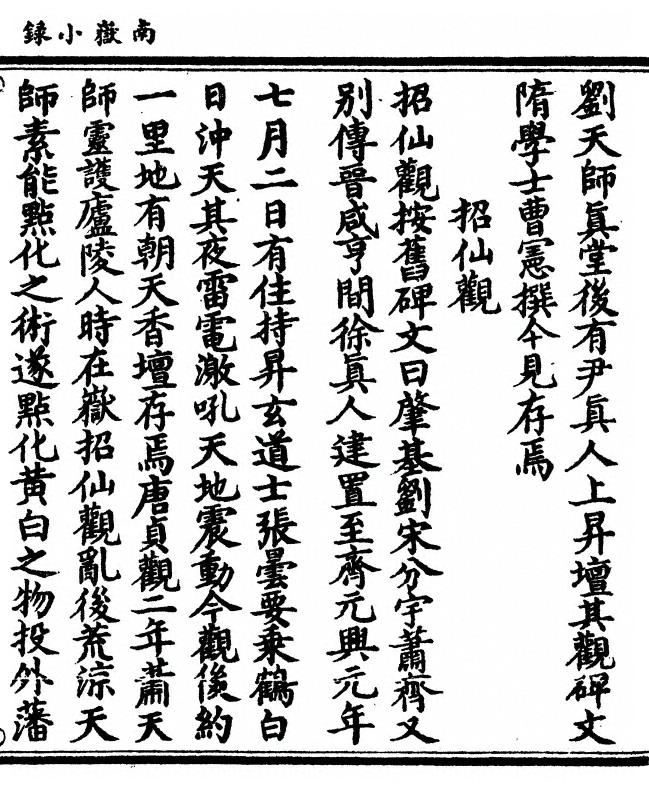 南嶽小錄
劉天師眞堂後有尹眞人上昇壇其觀碑文
隋學士曹憲撰今見存焉
招仙觀
招仙觀按舊碑文曰肇基劉宋分宇蕭齊又
別傳晉咸亨間徐眞人建置至齊元興元年
七月二日有住持昇玄道士張曇要乘鶴白
日沖天其夜雷電激吼天地震動今觀後約
一里地有朝天香壇存焉唐貞觀二年蕭天
師靈護廬陵人時在嶽招仙觀亂後荒涼天
師素能點化之術遂點化黃白之物投外藩